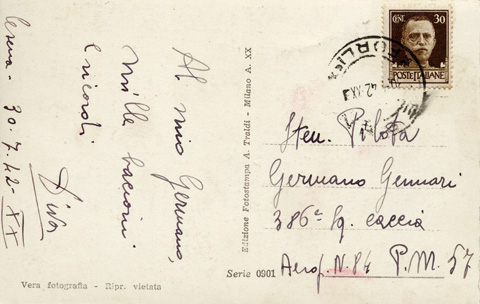 Al mio Germano,
mille bacioni
e ricordi
Diva
Cesena - 30.7.42-XX
Vera fotografia - Ripr. vietata
Edizione Fotostampa A. Traldi - Milano A. XX
Serie 0901
CENT. 30
POSTE ITALIANE
FORLI
42 XX
Sten. Pilota
Germano Gennari
386ª Sq. caccia
Aerop. N. 84 P.M. 57